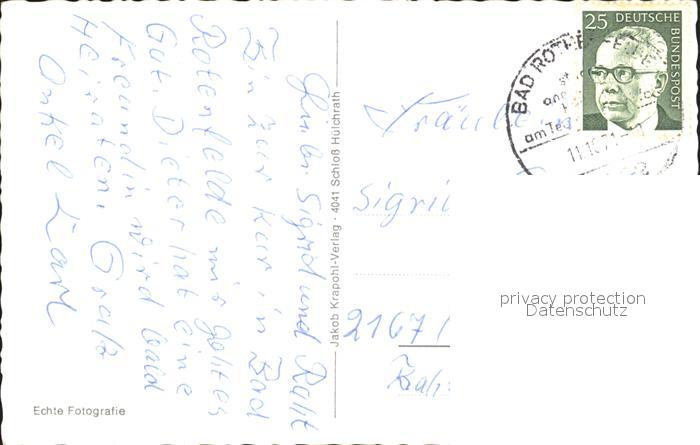 Liebe Sigrid und Ralf
Bin zur Kur in Bad
Rotenfelde mir geht es
Gut. Dieter hat eine
Freundin wird bald
Heiraten. Gruß
Onkel Karl
Echte Fotografie
Jakob Krapohl-Verlag · 4041 Schloß Hülchrath
Fräulein
Sigri
2167
25 DEUTSCHE
BUNDESPOST
BAD ROTHENFELDE
am Te
11.10.71
privacy protection
Datenschutz